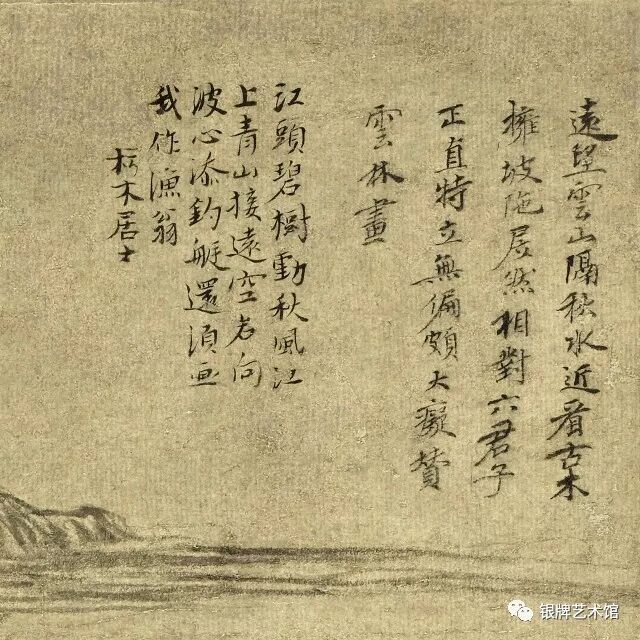 遠望雲山隔秋水近看古木
擁坡陁居然相對六君子
正直特立無偏頗大癡贊
雲林畫
江頭碧樹動秋風江
上青山接遠空若向
波心添釣艇還須畫
我作漁翁
朽木居士
银牌艺术馆